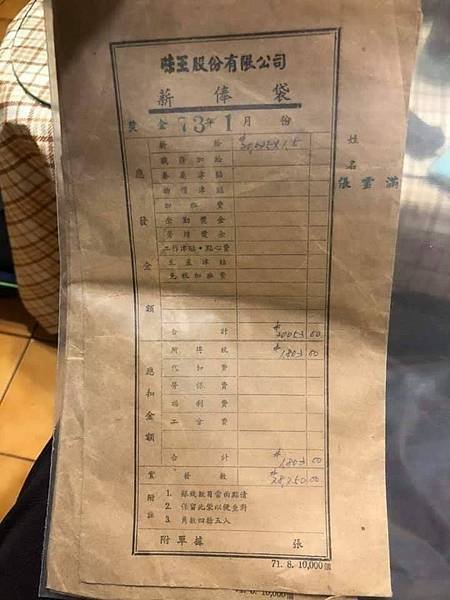 味王股份有限公司
薪俸袋
獎金 73年1月份
姓名 張雲滿
應發金額
薪給 $20,035X1.5
職務加給
津貼
物價津貼
加班費
全勤獎金
獎金
工作津貼・點心費
生產津貼
免稅加班費
合計 $30053.00
應扣金額
所得稅 $1803.00
代扣費
勞保費
福利費
工會費
合計 $1803.00
實發數 $28,250.00
附註
1. 銀錢數目當面點清
2. 保留此袋以便查對
3. 角數四捨五入
附單據 張
71. 8. 10,000個
71. 8. 10,000個